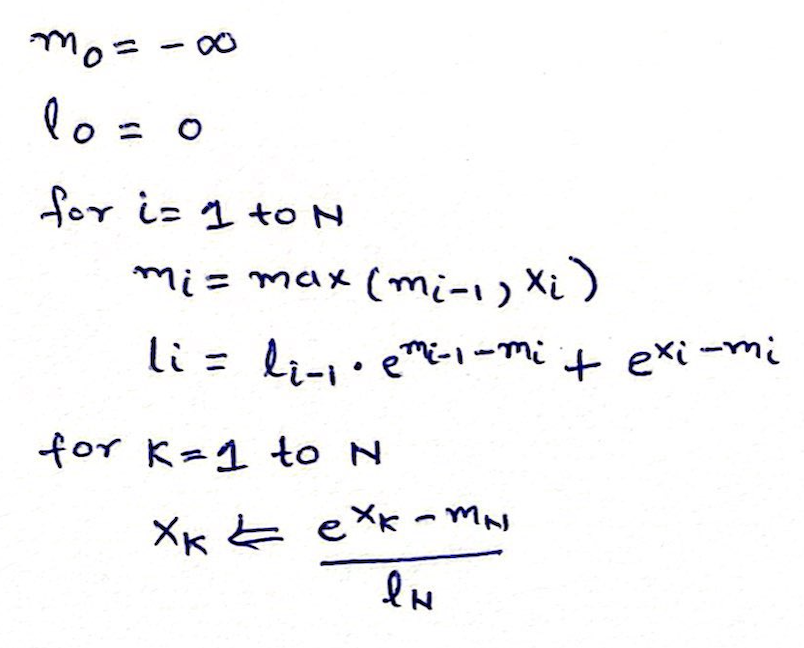 m₀ = -∞
l₀ = 0
for i = 1 to N
mᵢ = max (mᵢ₋₁, xᵢ)
lᵢ = lᵢ₋₁ · e^(mᵢ₋₁ - mᵢ) + e^(xᵢ - mᵢ)
for K = 1 to N
x_K ⇐ e^(x_K - m_N) / l_N